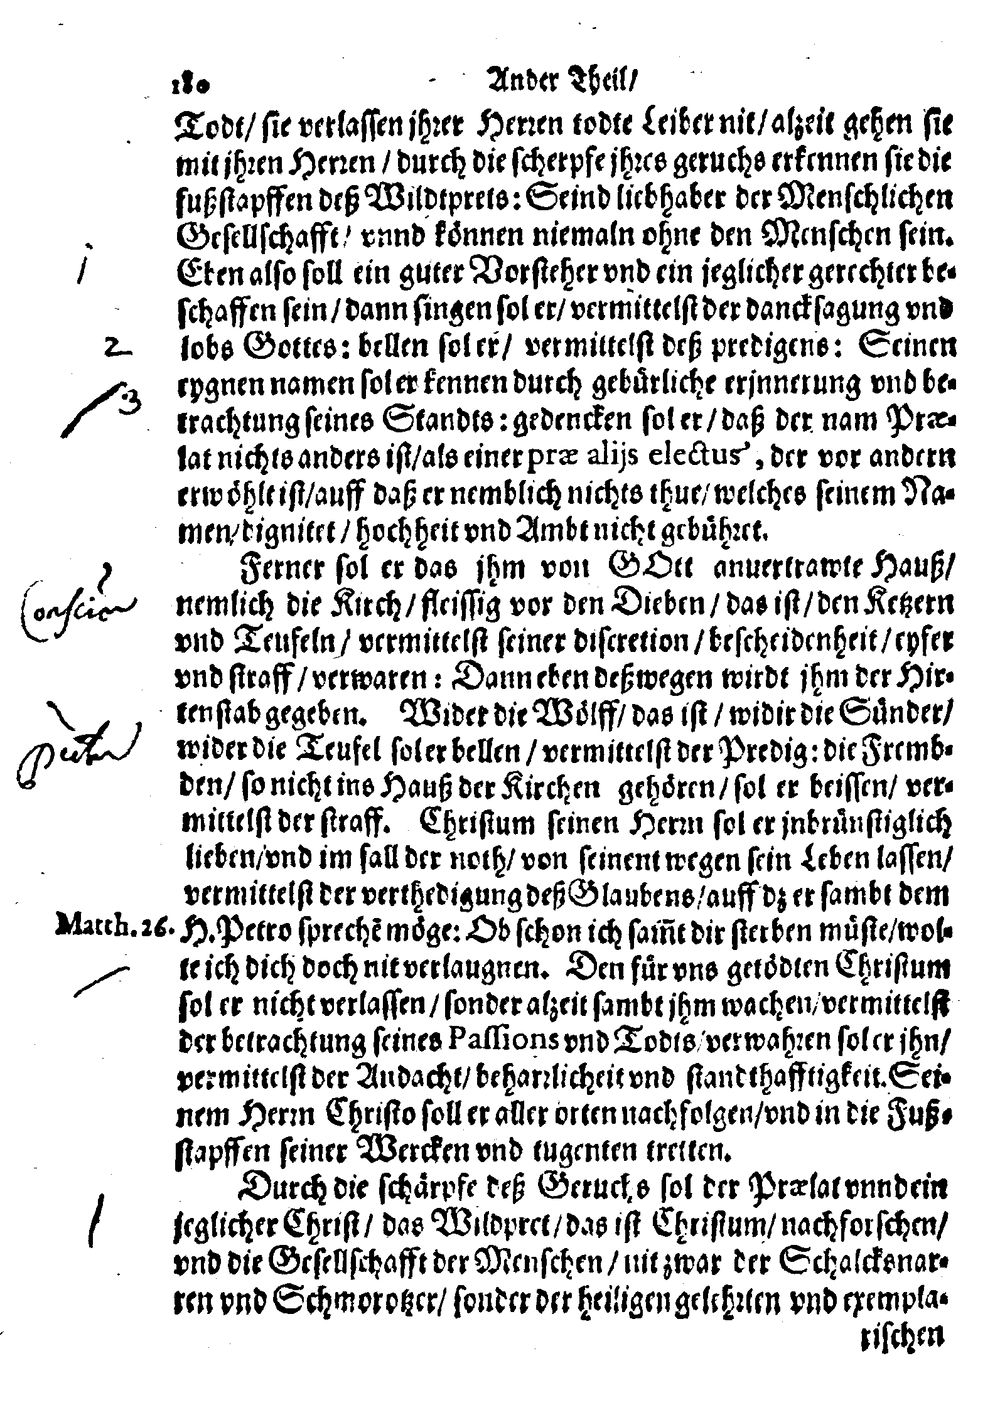 180 Ander Theil/
Todt/ sie verlassen jhrer Herren todte Leiber nit/ alzeit gehen sie
mit jhren Herren / durch die scherpfe jhres geruchs erkennen sie die
fußstapffen deß Wildtprets: Seind liebhaber der Menschlichen
Gesellschafft/ vnnd können niemaln ohne den Menschen sein.
1
Eben also soll ein guter Vorsteher vnd ein jeglicher gerechter be-
schaffen sein/ dann singen sol er/ vermittelst der dancksagung vnd
2
lobs Gottes: bellen sol er/ vermittelst deß predigens: Seinen
3
eygnen namen sol er kennen durch gebürliche erjnnerung vnd be-
trachtung seines Standts: gedencken sol er/ daß der nam Præ-
lat nichts anders ist/ als einer præ alijs electus, der vor andern
erwöhlt ist/ auff daß er nemblich nichts thue/ welches seinem Na-
men/ dignitet / hochheit vnd Ambt nicht gebühret.
Ferner sol er das jhm von GOtt anuertrawte Hauß/
nemlich die Kirch/ fleissig vor den Dieben/ das ist/ den Ketzern
vnd Teufeln/ vermittelst seiner discretion/ bescheidenheit/ eyfer
vnd straff/ verwaren: Dann eben deßwegen wirdt jhm der Hir-
tenstab gegeben. Wider die Wölff/ das ist/ widir die Sünder/
wider die Teufel sol er bellen / vermittelst der Predig: die Fremb-
den/ so nicht ins Hauß der Kirchen gehören/ sol er beissen/ ver-
mittelst der straff. Christum seinen Herrn sol er jnbrünstiglich
lieben/ vnd im fall der noth/ von seinent wegen sein Leben lassen/
vermittelst der verthedigung deß Glaubens/ auff dz er sambt dem
Matth. 26. H. Petro sprechē möge: Ob schon ich sam̃t dir sterben müste/ wol-
te ich dich doch nit verlaugnen. Den für vns getödten Christum
sol er nicht verlassen/ sonder alzeit sambt jhm wachen/ vermittelst
der betrachtung seines Passions vnd Todts/ verwahren sol er jhn/
vermittelst der Andacht/ beharrlicheit vnd standthafftigkeit. Sei-
nem Herrn Christo soll er aller orten nachfolgen/ vnd in die Fuß-
stapffen seiner Wercken vnd tugenten tretten.
Durch die schärpfe deß Geruchs sol der Prælat vnnd ein
jeglicher Christ/ das Wildpret/ das ist Christum/ nachforschen/
vnd die Gesellschafft der Menschen / nit zwar der Schalcksnar-
ren vnd Schmorotzer/ sonder der heiligen gelehrten vnd exempla-
rischen